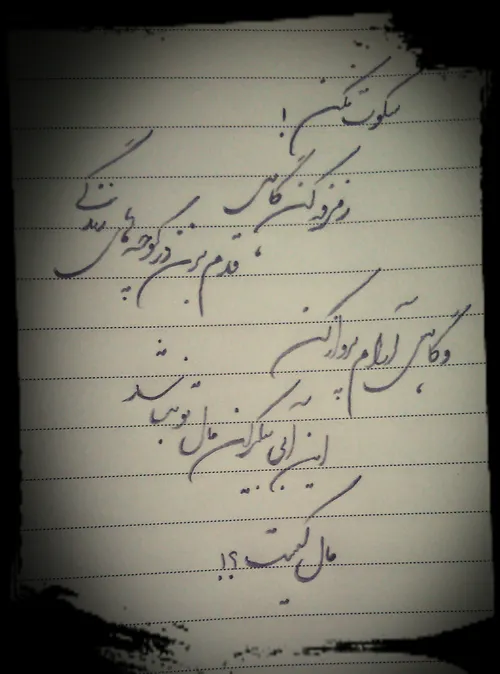 سکوت مکن !
زمزمه کن گاهی
، قدم بزن در کوچه های زندگی
و گاهی آرام پرواز کن
این آبی بیکران مال تو نباشد
مال کیست ؟!